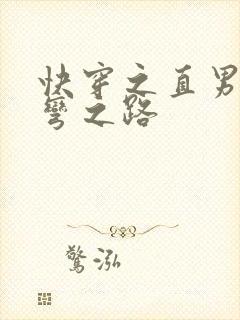 快穿之直男
彎之路
驚泓